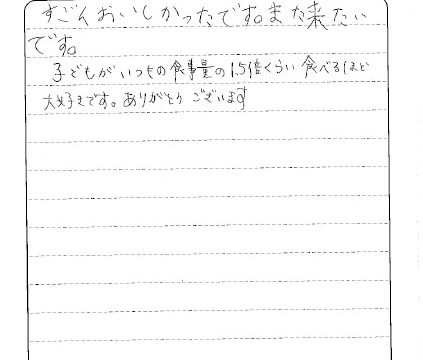 すごくおいしかったです。また来たい
です。
子どもがいつもの食事量の1.5倍くらい食べるほど
大好きです。ありがとうございます